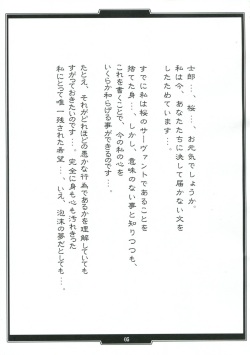 士郎…、桜…、お元気でしょうか。
私は今、あなたたちに決して届かない文を
したためています…。
すでに私は桜のサーヴァントであることを
捨てた身…。しかし、意味のない夢と知りつつも、
これを書くことで、今の私の心を
いくらか和らげる事ができるのです…。
たとえ、それがどれほどの愚かな行為であるかを理解していても
すがっておきたいのです…。完全に身も心も汚れきった
私にとって唯一残された希望…、いえ、泡沫の夢だとしても…。
05